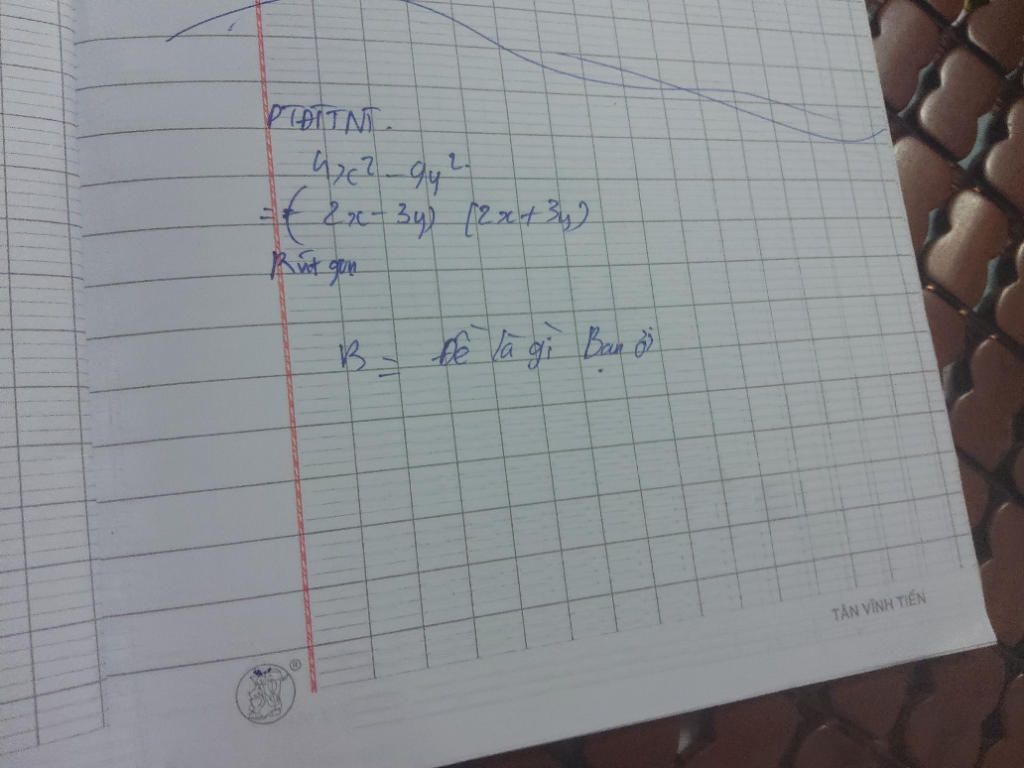 PTĐTTNT.
4x² - 9y²
= (2x - 3y) (2x + 3y)
Rút gọn
B = Đề là gì Bạn ơi
TÂN VĨNH TIẾN
®